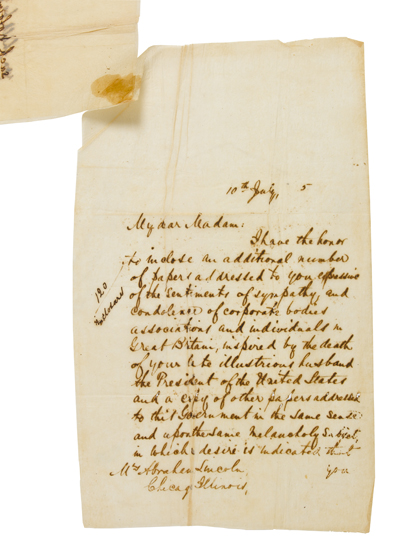 10th July, 5
My dear Madam:
I have the honor
to inclose an additional number
of papers addressed to you expressive
of the sentiments of sympathy, and
condolence of corporate bodies
associations and individuals in
Great Britain, inspired by the death
of your late illustrious husband
the President of the United States
and a copy of other papers addressed
to this Government in the same sense
and upon the same melancholy subject,
in which desire is indicated that
you
120
Mrs Abraham Lincoln
Chicago Illinois,